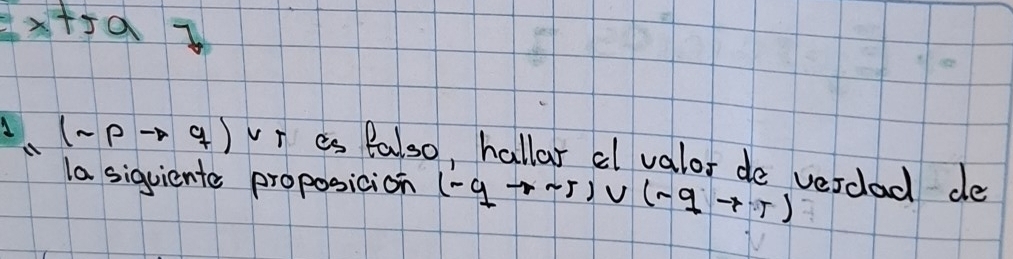 Extra 1
1 (~p → q) v r es falso, hallar el valor de verdad de
la siguiente proposición (~q → ~r) v (~q → r)